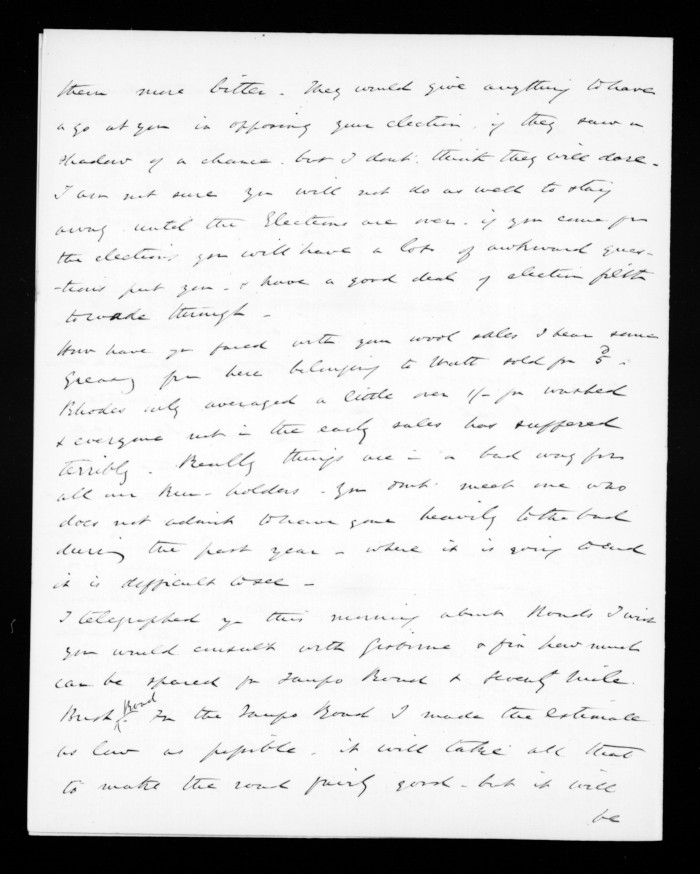 them more bitter. They would give anything to have
a go at you in opposing your election, if they saw a
shadow of a chance. but I dont think they will dare -
I am not sure you will not do as well to stay
away until the Elections are over. if you come for
the elections you will have a lots of awkward ques-
-tions put you - & have a good deal of election filth
to wade through -
How have you fared with your wool sales I hear some
Greasy from here belonging to Watt sold for 5d -
Rhodes only averaged a little over 1/- for washed
& everyone not in the early sales has suffered
terribly. Really things are in a bad way for
all our Run-holders. You dont meet one who
does not admit to have gone heavily to the bad
during the past year - where it is going to end
it is difficult to see -
I telegraphed you this morning about Roads I wish
you would consult with Gisborne & fix how much
can be spared for Taupo Road & Seventy Mile
Bush Road. For the Taupo Road I made the estimate
as low as possible. it will take all that
to make the road fairly good - but it will
be